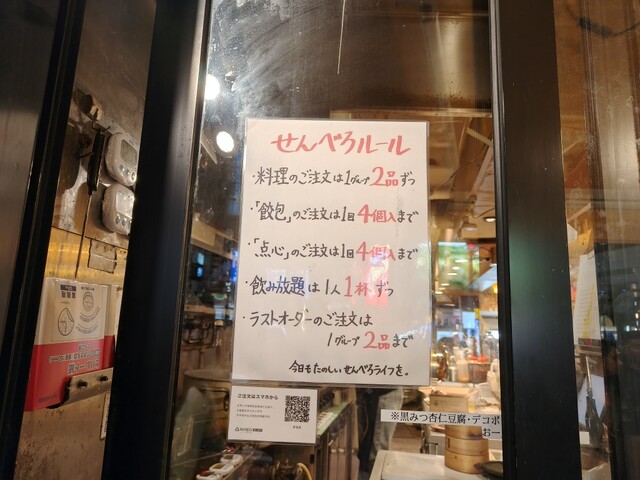 せんべろルール
・料理のご注文は1グループ2品ずつ
・「餃包」のご注文は1回4個入まで
・「点心」のご注文は1回4個入まで
・飲み放題は1人1杯ずつ
・ラストオーダーのご注文は
1グループ2品まで
今日もたのしいせんべろライフを。
ご注文はスマホから
※黒みつ杏仁豆腐・デコポ
お一